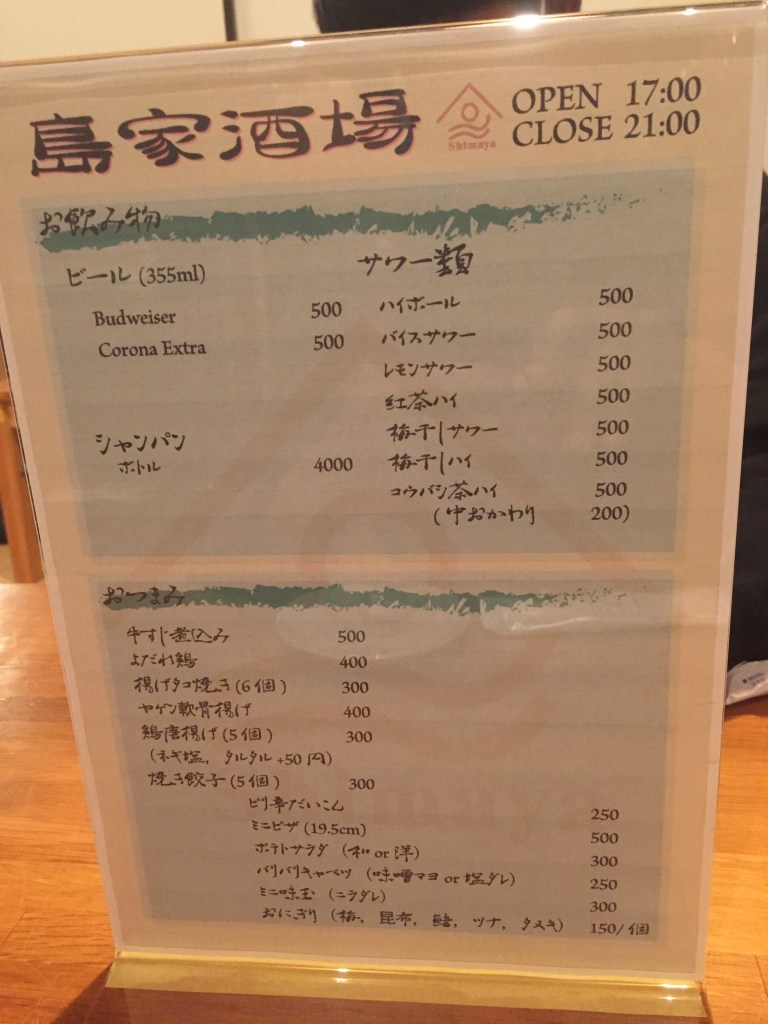 島家酒場
Shimaya
OPEN 17:00
CLOSE 21:00
お飲み物
ビール (355ml)
Budweiser 500
Corona Extra 500
シャンパン
ボトル 4000
サワー類
ハイボール 500
バイスサワー 500
レモンサワー 500
紅茶ハイ 500
梅干しサワー 500
梅干しハイ 500
コウバシ茶ハイ 500
(中おかわり 200)
おつまみ
牛すじ煮込み 500
よだれ鶏 400
揚げタコ焼き(6個) 300
ヤゲン軟骨揚げ 400
鶏唐揚げ(5個) 300
(ネギ塩, タルタル +50円)
焼き餃子(5個) 300
ピリ辛だいこん 250
ミニピザ (19.5cm) 500
ポテトサラダ (和 or 洋) 300
バリバリキャベツ (味噌マヨ or 塩ダレ) 250
ミニ味玉 (ニラダレ) 300
おにぎり (梅, 昆布, 鮭, ツナ, タヌキ) 150/個